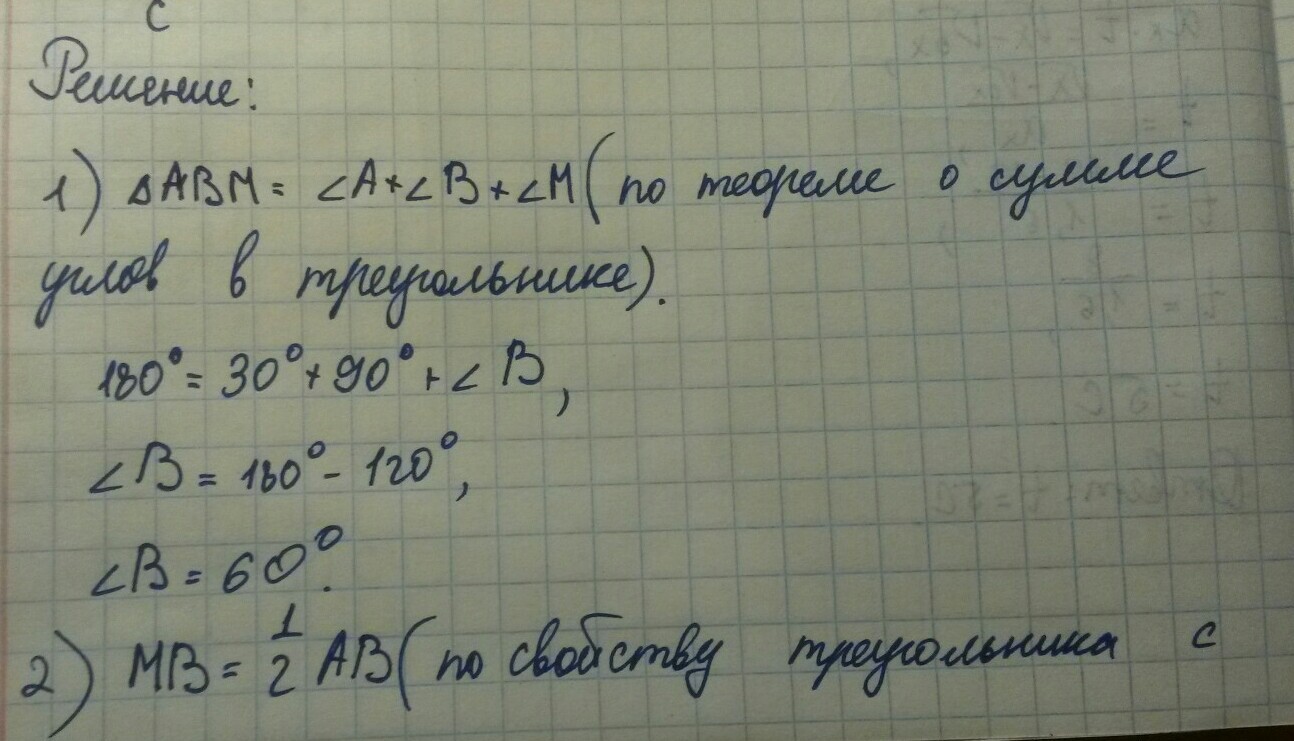 с
Решение:
1) △ABM = ∠A+∠B+∠M (по теореме о сумме
углов в треугольнике).
180° = 30° + 90° + ∠B,
∠B = 180° - 120°,
∠B = 60°.
2) MB = 1/2 AB (по свойству треугольника с